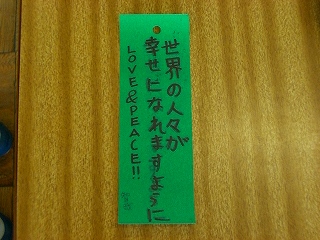 世界の人々が
幸せになれますように
LOVE&PEACE!!